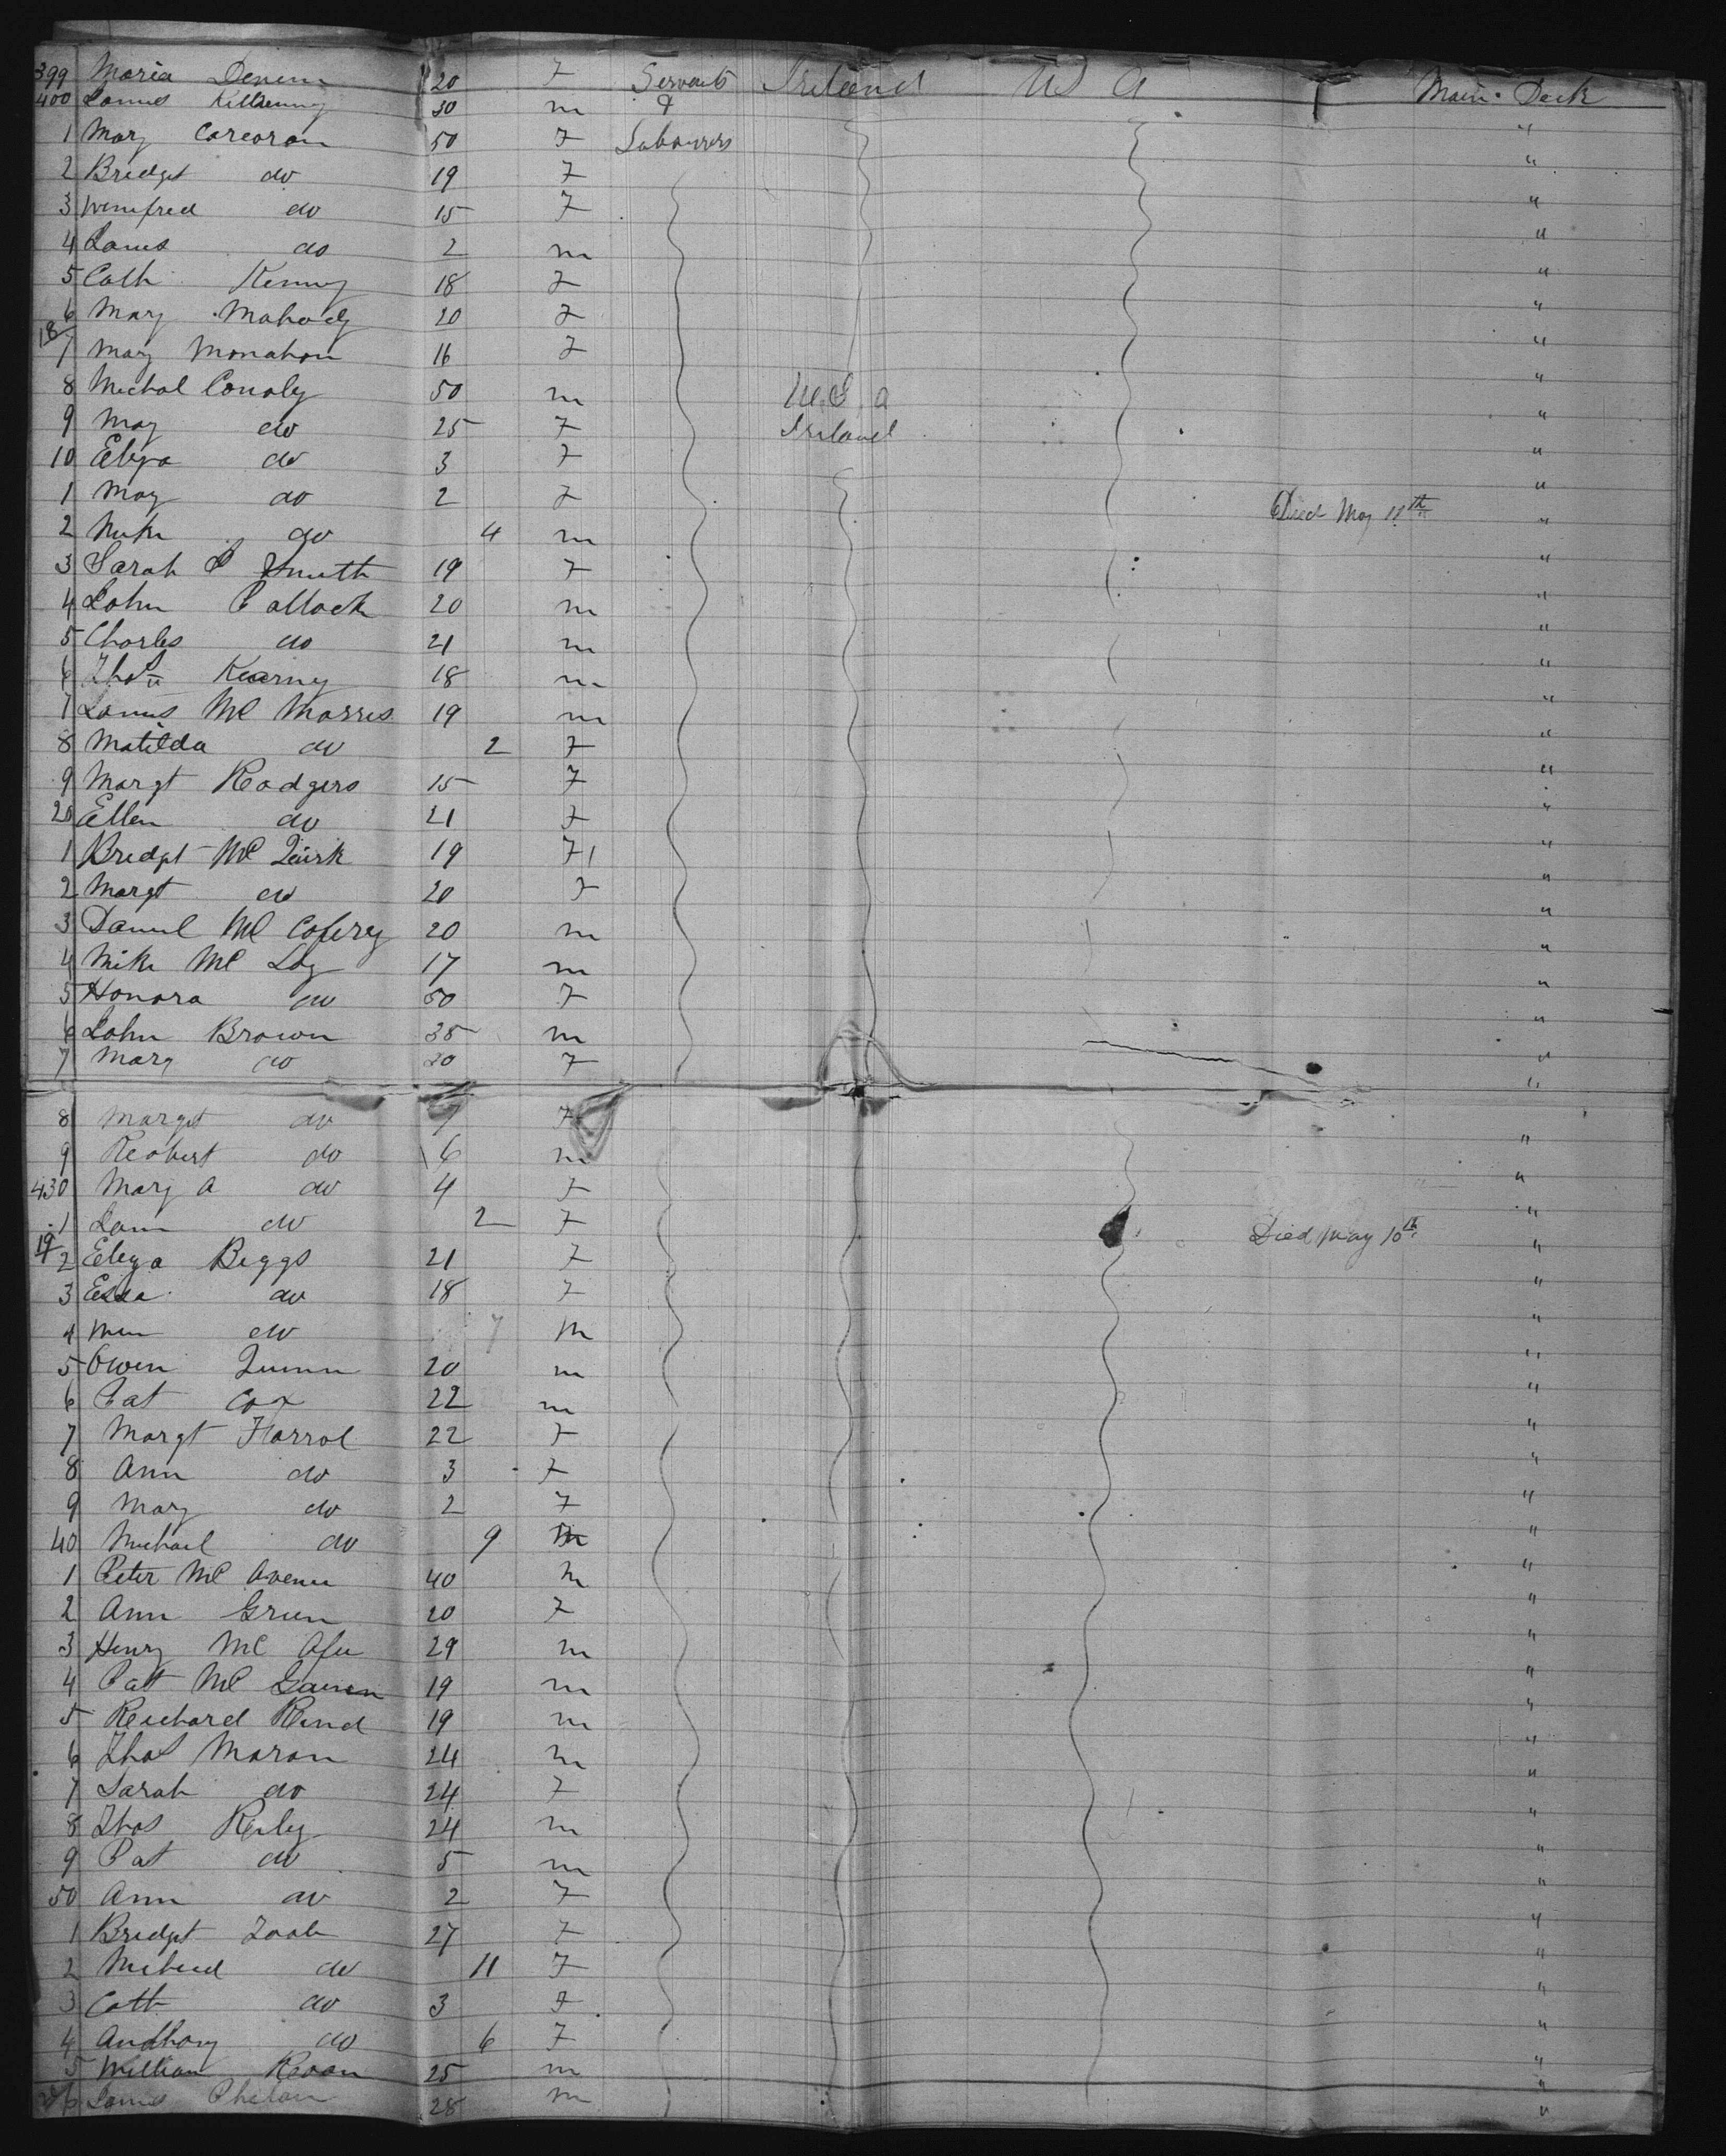 399 Maria 20 F Servants Ireland U S A Main Deck
400 James Kilkenny 30 m & "
1 Mary Corcoran 50 F Labourers "
2 Bridget do 19 F "
3 Winifred do 15 F "
4 James do 2 m "
5 Cath Kenny 18 F "
6 Mary 20 F "
18
7 Mary Monahan 16 F "
8 Michal Conoly 50 m U.S. a "
9 Mary do 25 F Ireland "
10 Eliza do 3 F "
1 Mary do 2 F Died May "
2 Mike do 4 m "
3 Sarah Smith 19 F "
4 John Pollock 20 m "
5 Charles do 21 m "
6 Thos Kearny 18 m "
7 James Mc Morris 19 m "
8 Matilda do 2 F "
9 Margt Rodgers 15 F "
20 Ellen do 21 F "
1 Bridget Mc Quirk 19 F "
2 Margt do 20 F "
3 Daniel Mc Cofirey 20 m "
4 Mike Mc Loy 17 m "
5 Honora do 50 F "
6 John Brown 35 m "
7 Mary do 20 F "
8 Marget do 7 F "
9 Robert do 6 m "
430 Mary A do 4 F "
1 Jane do 2 F Died May 10th "
19
2 Eliza Biggs 21 F "
3 do 18 F "
4 Wm do 7 m "
5 Owen Quinn 20 m "
6 Pat Cox 22 m "
7 Margt Harrol 22 F "
8 Ann do 3 F "
9 Mary do 2 F "
40 Michael do 9 m "
1 Peter Mc Avenu 40 m "
2 Ann Green 20 F "
3 Henry Mc Afee 29 m "
4 Pat Mc 19 m "
5 Richard Rind 19 m "
6 Thos Moran 24 m "
7 Sarah do 24 F "
8 Thos Rily 24 m "
9 Pat do 5 m "
50 Ann do 2 F "
1 Bridget Toole 27 F "
2 Micheal do 11 F "
3 Cath do 3 F "
4 Andhony do 6 F "
5 William Roon 25 m "
6 James Phelan 28 m "